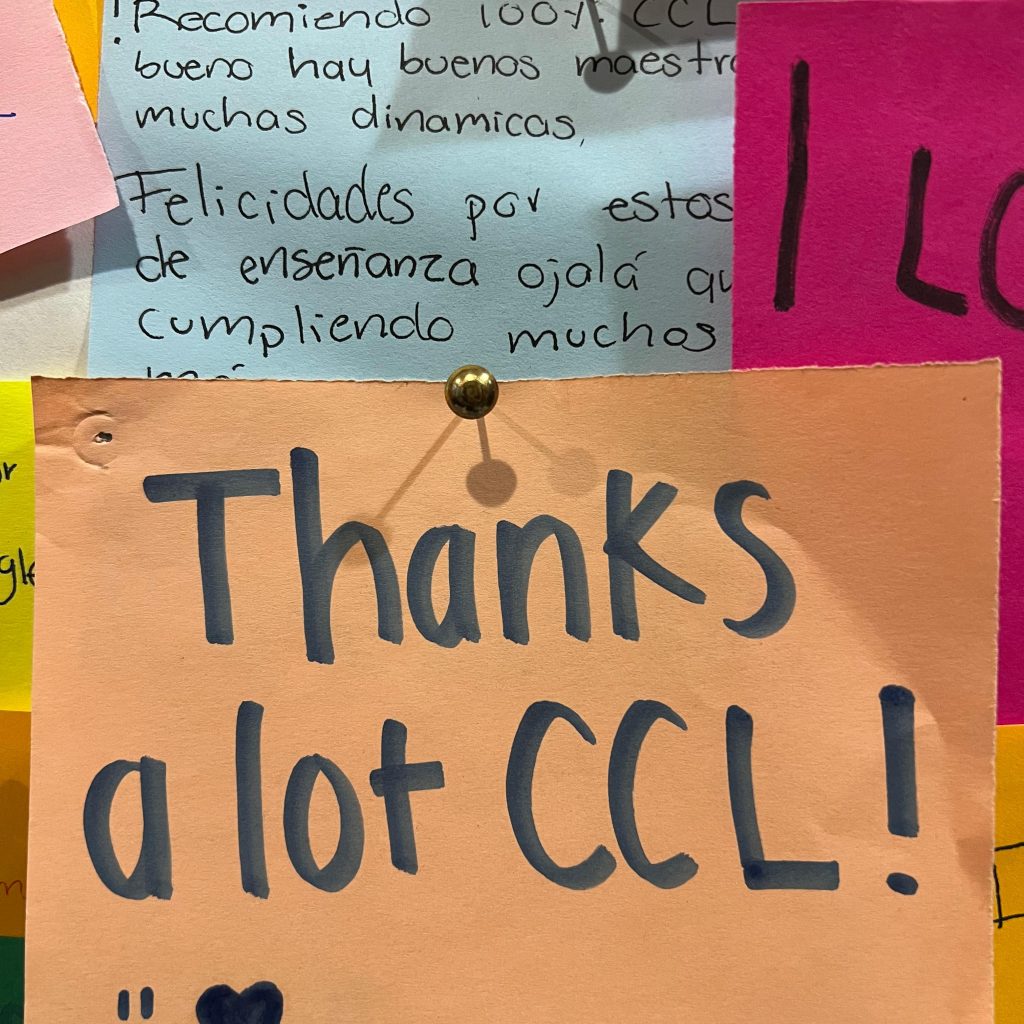 ¡Recomiendo 100% CCL
bueno hay buenos maestro
muchas dinamicas,
Felicidades por estos
de enseñanza ojalá qu
cumpliendo muchos
I LO
Thanks
a lot CCL!